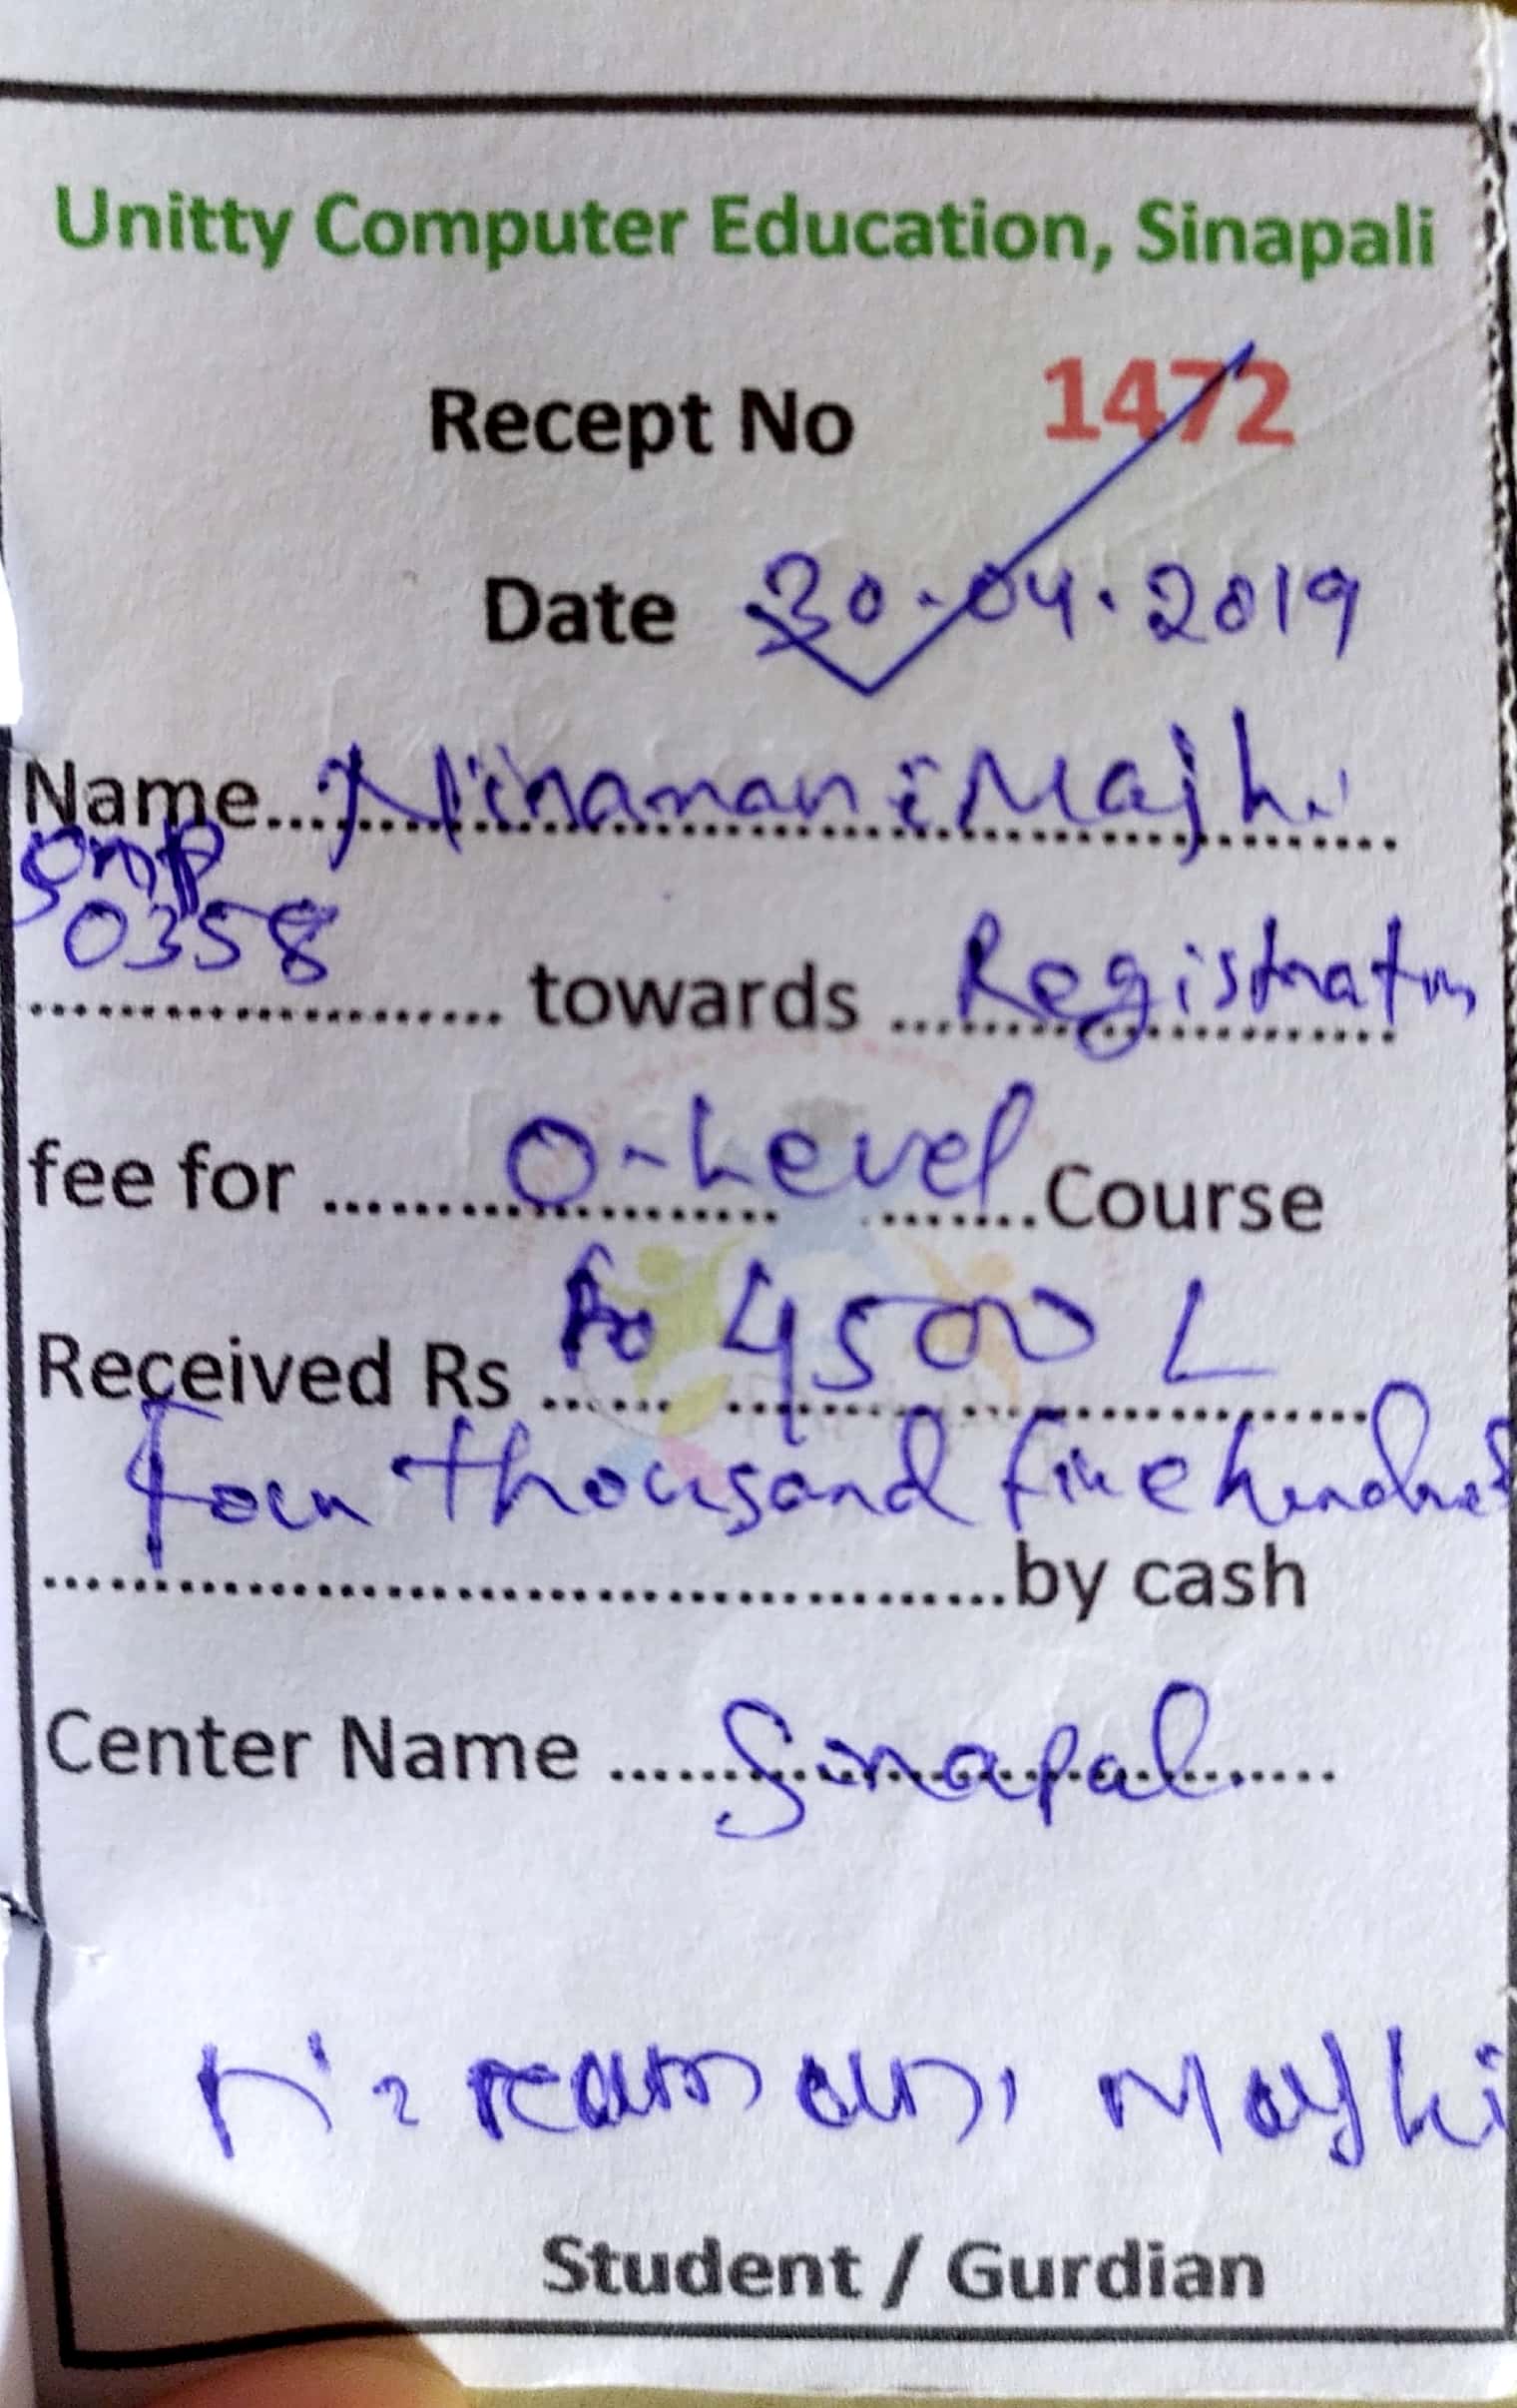 Unitty Computer Education, Sinapali
Recept No 1472
Date 30.04.2019
Name Niramani Majhi
SNP
0358
towards Registration
fee for O-Level Course
Received Rs Rs 4500/-
Four thousand five hundred
by cash
Center Name Sinapali
Niramani Majhi
Student / Gurdian